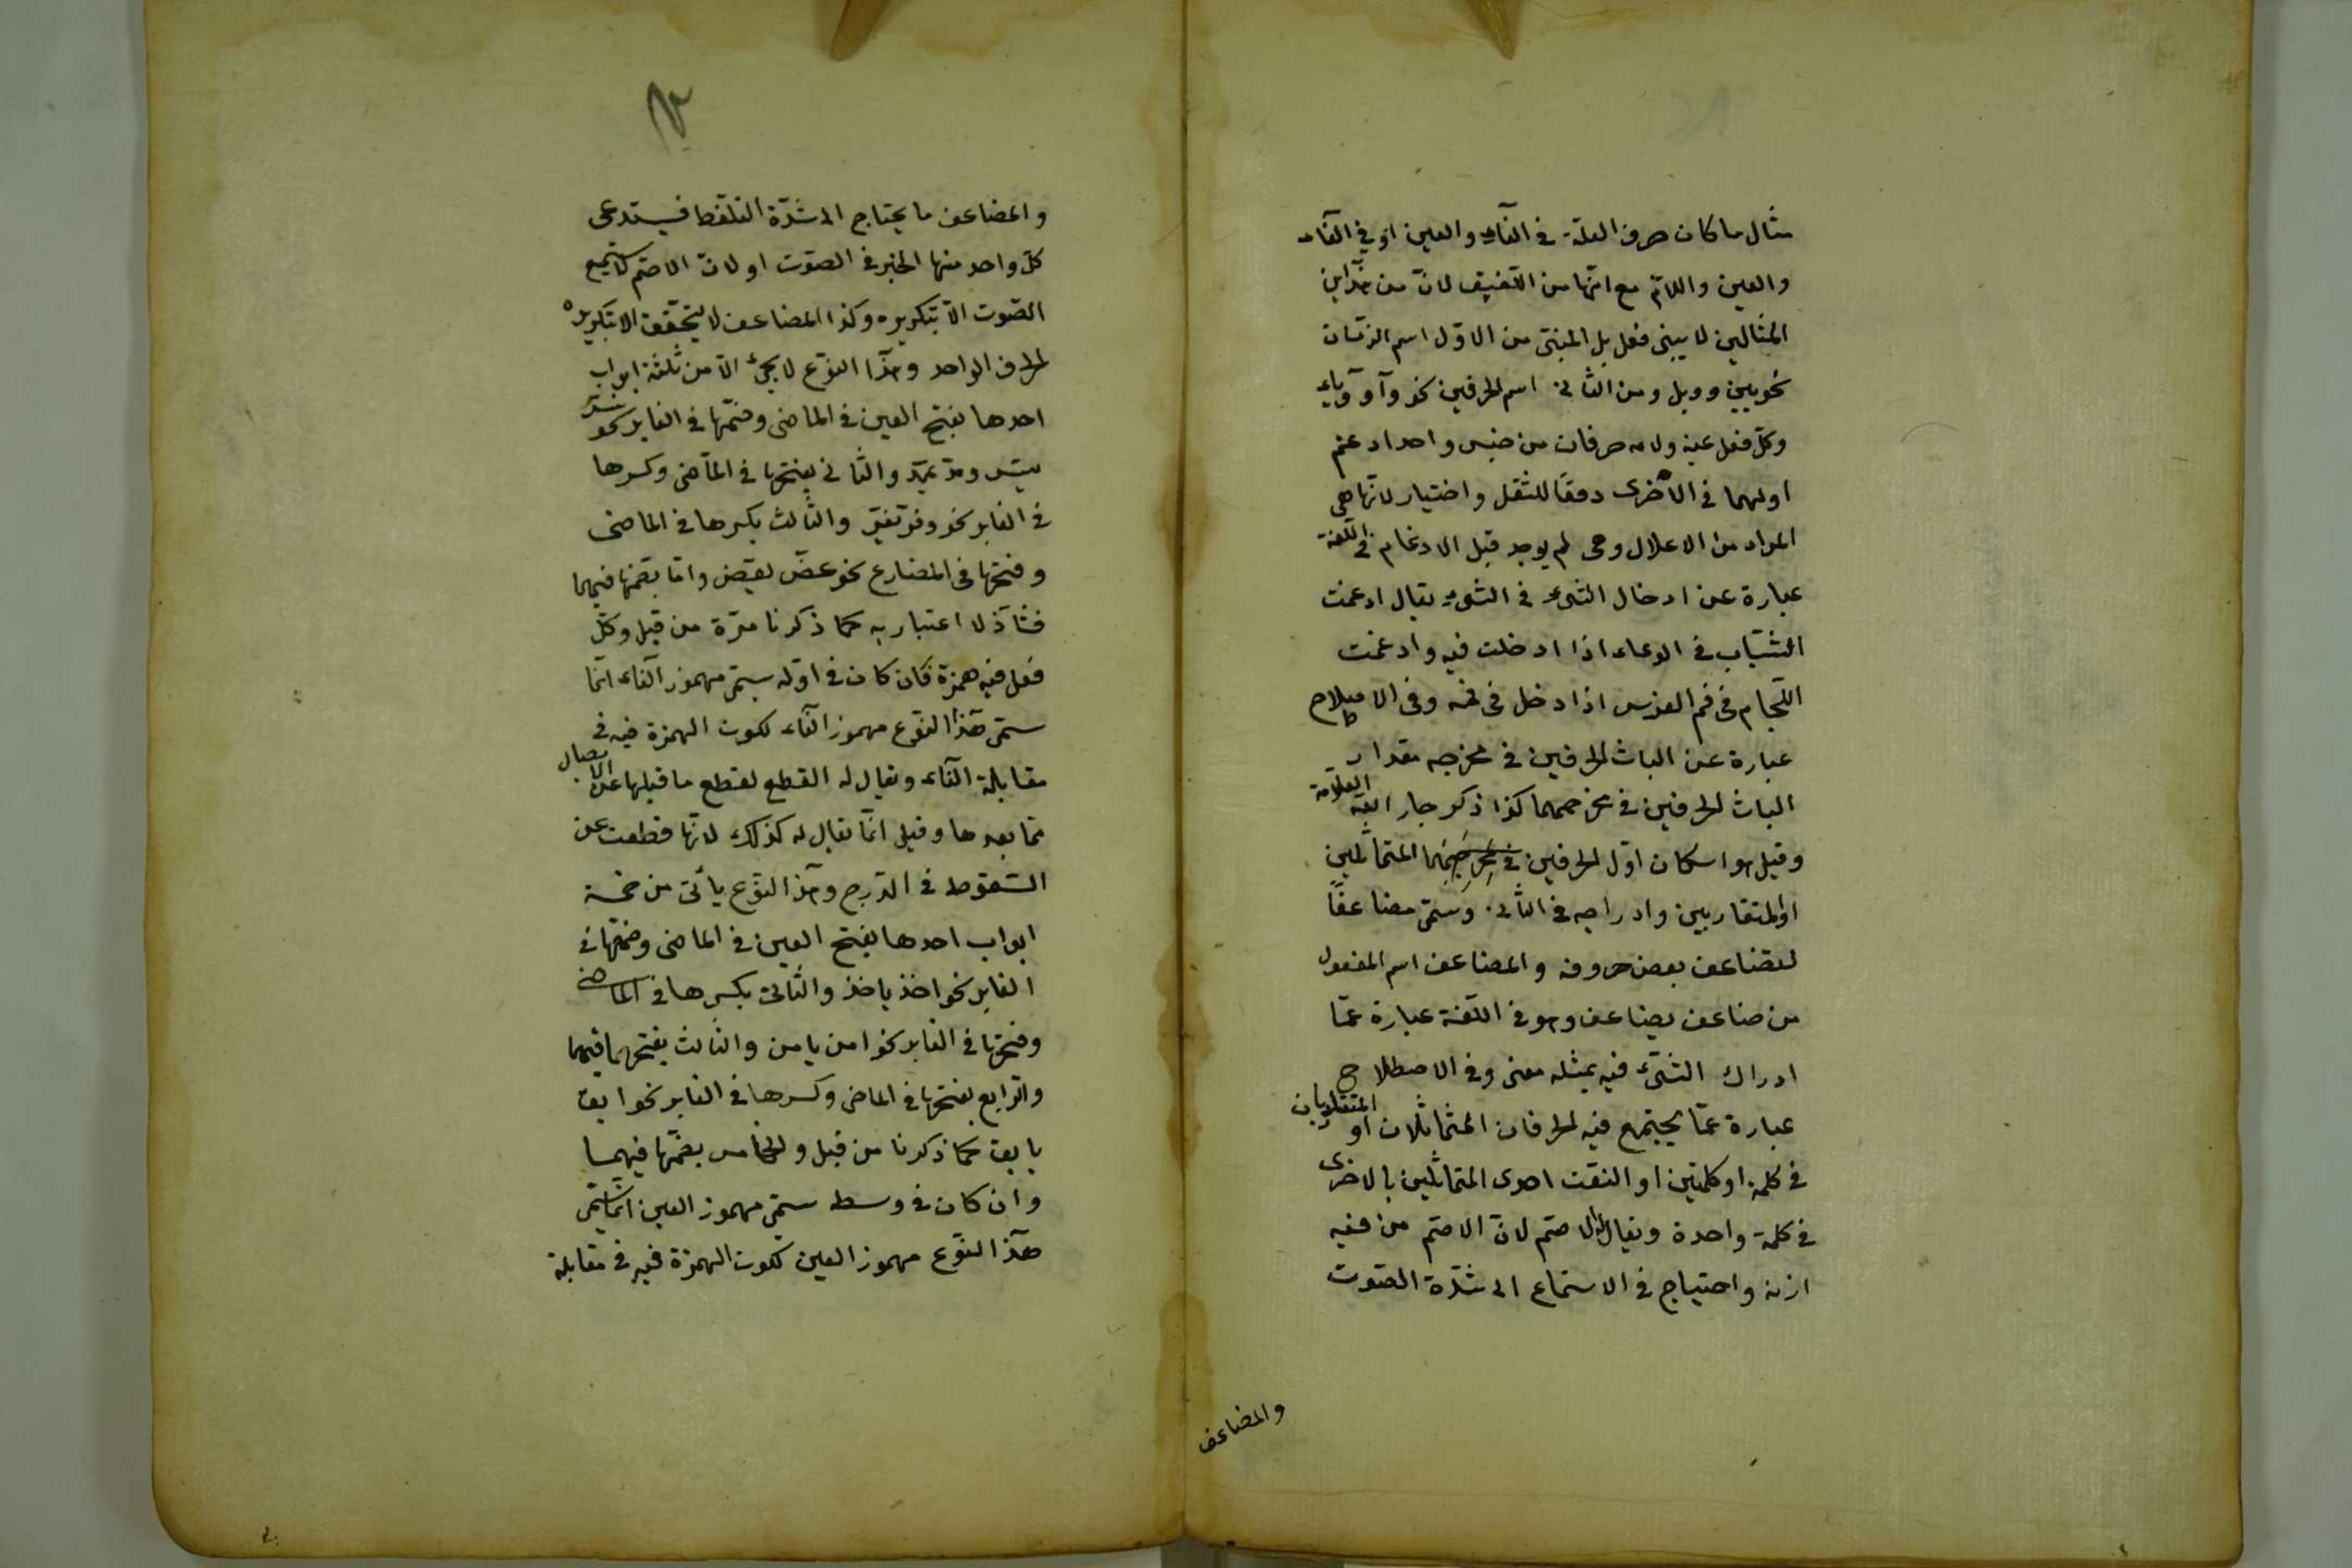 مثال ما كان حرف العلّة في الفآء والعين او في الفآء
والعين واللآم مع انّها من اللّفيف لانّ من هذين
المثالين لا يبنى فعل بل المبنىّ من الاوّل اسم الزّمان
نحو يين وويل ومن الثّانى اسم الحرفين نحو وآو وياء
وكلّ فعل عينه ولامه حرفان من جنس واحد ادغم
اولهما في الأخرى دفعًا للثقل واختيار لانّها هى
المراد من الاعلال وهى لم يوجد قبل الادغام في اللّغة
عبارة عن ادخال الشّىء في الشّىء يقال ادغمت
الشّياب في الوعاء اذا ادخلت فيه وادغمت
اللّجام في فم الفرس اذا دخل في فمه وفى الاصطلاح
عبارة عن الباث الحرفين في مخرجه مقدار
الباث الحرفين في مخرجهما كذا ذكر جار الله العلّامة
وقيل هو اسكان اوّل الحرفين في مخرجهما المتماثلين
او المتقاربين وادراجه في الثّانى وسمّى مضاعفًا
لتضاعف بعض حروفه والمضاعف اسم المفعول
من ضاعف يضاعف وهو في اللّغة عبارة عمّا
ادراك الشّىء فيه بمثله معنى وفى الاصطلاح
عبارة عمّا يجتمع فيه الحرفان المتماثلان او المتقاربان
في كلمة او كلمتين او التقت احدى المتماثلين بالاخرى
في كلمة واحدة ويقال له الاصم لانّ الاصم من فيه
اذنه واحتياج في الاستماع الى شدّة الصّوت
والمضاعف
والمضاعف ما يحتاج الى شدّة التّلفّظ فيستدعى
كلّ واحد منها الجبر في الصّوت او لانّ الاصمّ لا يسمع
الصّوت الاّ بتكريره وكذا المضاعف لا يتحقّق الا بتكريره
الحرف الواحد وهذا النّوع لا يجئ الاّ من ثلثة ابواب
احدها بفتح العين في الماضى وضمّها في الغابر نحو سرّ
يسرّ ومدّ يمدّ والثّانى بفتحها في الماضى وكسرها
في الغابر نحو وفرّ تفرّ والثّالث بكسرها في الماضى
وفتحها في المضارع نحو عضّ يعضّ وامّا بضمّها فيهما
فشآذ لا اعتبار به كما ذكرنا مرّة من قبل وكلّ
فعل فيه همزة فان كان في اوّله سمّى مهموز الفآء انّما
سمّى هذا النّوع مهموز الفآء لكون الهمزة فيه في
مقابلة الفآء ويقال له القطع لقطع ما قبلها عن الاتصال
بما بعدها وقيل انّما يقال له كذلك لانّها قطعت عن
السّقوط في الدّرج وهذا النّوع يأتى من خمسة
ابواب احدها بفتح العين في الماضى وضمّها في
الغابر نحو اخذ ياخذ والثّانى بكسرها في الماضى
وفتحها في الغابر نحو امن يامن والثّالث بفتحهما فيهما
والرّابع بفتحها في الماضى وكسرها في الغابر نحو ابق
يابق كما ذكرنا من قبل والخامس بضمّها فيهما
وان كان في وسطه سمّى مهموز العين انّما سمّى
هذا النّوع مهموز العين لكون الهمزة فيه في مقابلة